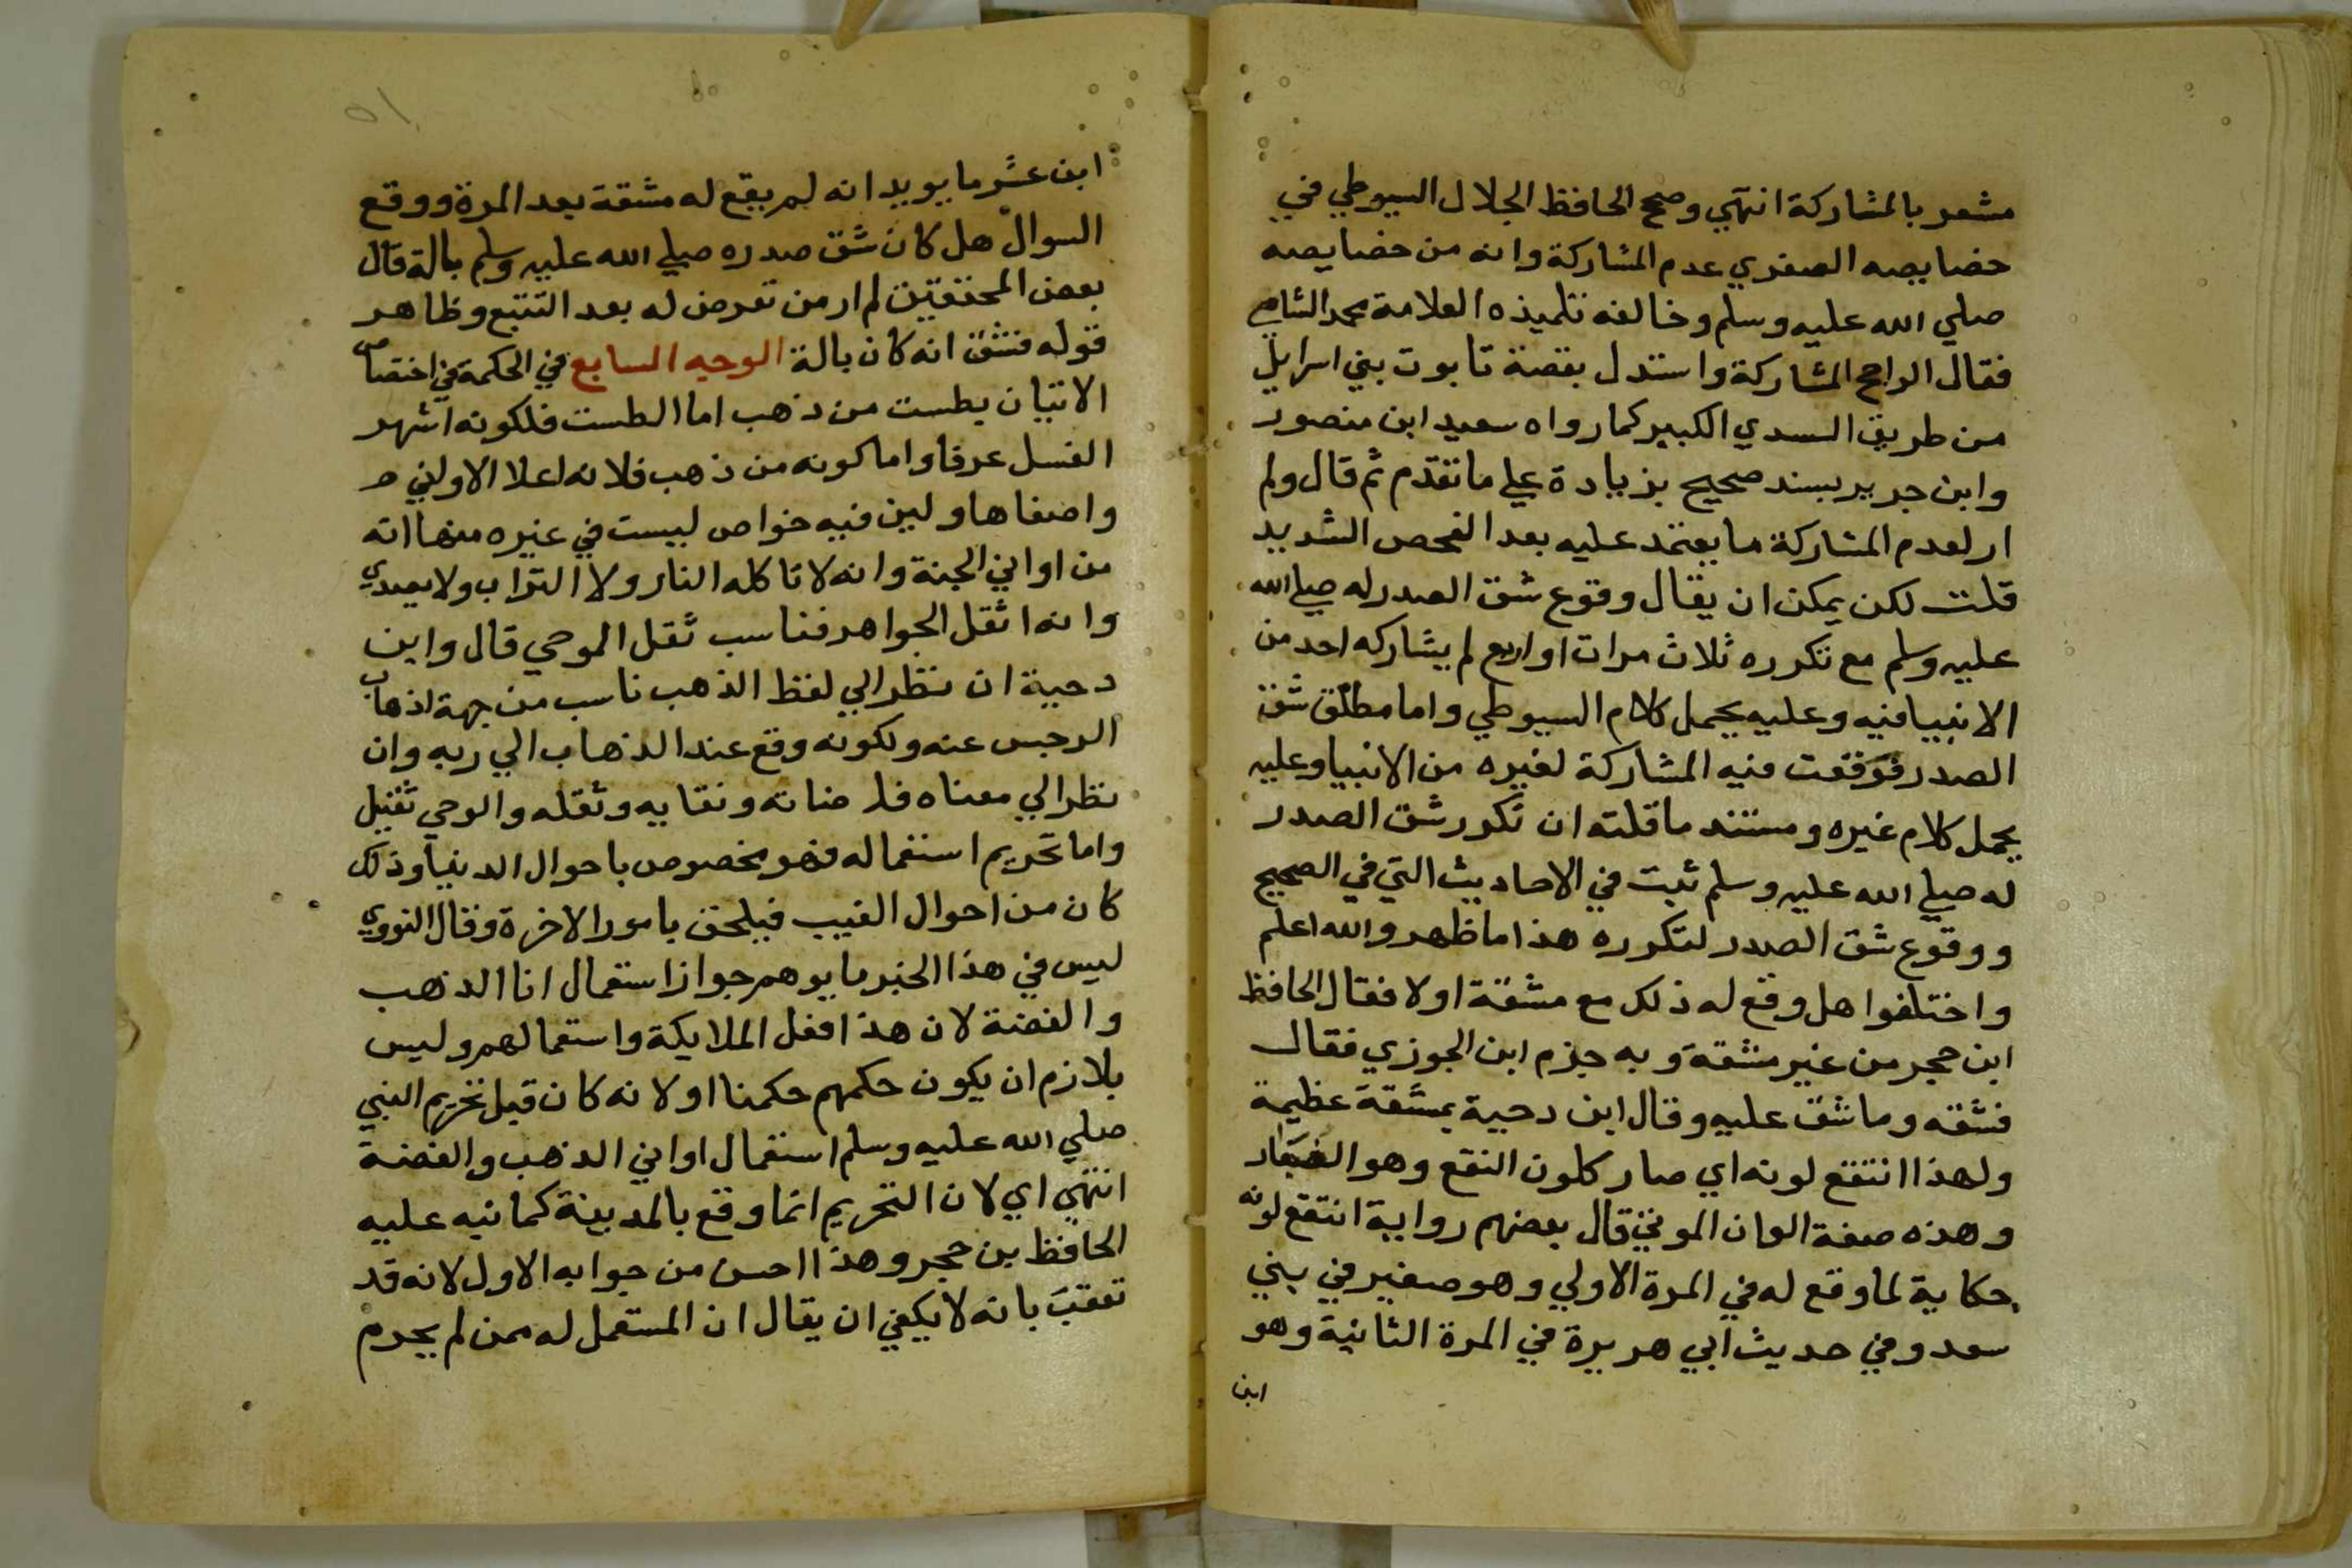 مشعر بالمشاركة انتهي وصحح الحافظ الجلال السيوطي في
خصايصه الصغري عدم المشاركة وانه من خصايصه
صلي الله عليه وسلم وخالفه تلميذه العلامة محمد الشامي
فقال الراجح المشاركة واستدل بقصة تابوت بني اسرايل
من طريق السدي الكبير كما رواه سعيد ابن منصور
وابن جرير بسند صحيح بزيادة علي ما تقدم ثم قال ولم
ار لعدم المشاركة ما يعتمد عليه بعد الفحص الشديد
قلت لكن يمكن ان يقال وقوع شق الصدر له صلي الله
عليه وسلم مع تكرره ثلاث مرات او اربع لم يشاركه احد من
الانبيا فيه وعليه يحمل كلام السيوطي واما مطلق شق
الصدر فوقعت فيه المشاركة لغيره من الانبيا وعليه
يحمل كلام غيره ومستند ما قلته ان تكرر شق الصدر
له صلي الله عليه وسلم ثبت في الاحاديث التي في الصحيح
ووقوع شق الصدر لتكرره هذا ما ظهر والله اعلم
واختلفوا هل وقع له ذلك مع مشقة اولا فقال الحافظ
ابن حجر من غير مشقة وبه جزم ابن الجوزي فقال
فشقه وما شق عليه وقال ابن دحية بمشقة عظيمة
ولهذا انتقع لونه اي صار كلون النقع وهو الغبار
وهذه صفة الوان الموتي قال بعضهم رواية انتقع لونه
حكاية لما وقع له في المرة الاولي وهو صغير في بني
سعد وفي حديث ابي هريرة في المرة الثانية وهو
ابن
٥١
ابن عشر ما يويد انه لم يقع له مشقة بعد المرة ووقع
السوال هل كان شق صدره صلي الله عليه وسلم بالة قال
بعض المحققين لم ار من تعرض له بعد التتبع وظاهر
قوله فشق انه كان بالة الوجه السابع في الحكمة في اختصاص
الاتيان بطست من ذهب اما الطست فلكونه اشهر
الغسل عرفا واما كونه من ذهب فلانه اعلا الاواني
واصفاها ولين فيه خواص ليست في غيره منها انه
من اواني الجنة وانه لا تاكله النار ولا التراب ولا يصدي
وانه اثقل الجواهر فناسب ثقل الموحي قال وابن
دحية ان نظر الي لفظ الذهب ناسب من جهة اذهاب
الرجس عنه ولكونه وقع عند الذهاب الي ربه وان
نظر الي معناه فلوضاته ونقايه وثقله والوحي ثقيل
واما تحريم استعماله فهو مخصوص باحوال الدنيا وذلك
كان من احوال الغيب فيلحق بامور الاخرة وقال النووي
ليس في هذا الخبر ما يوهم جواز استعمال انا الذهب
والفضة لان هذا فعل الملايكة واستعمالهم وليس
بلازم ان يكون حكمهم حكمنا او لانه كان قبل تحريم النبي
صلي الله عليه وسلم استعمال اواني الذهب والفضة
انتهي اي لان التحريم انما وقع بالمدينة كما نبه عليه
الحافظ بن حجر وهذا احسن من جوابه الاول لانه قد
تعقب بانه لا يكفي ان يقال ان المستعمل له ممن لم يحرم